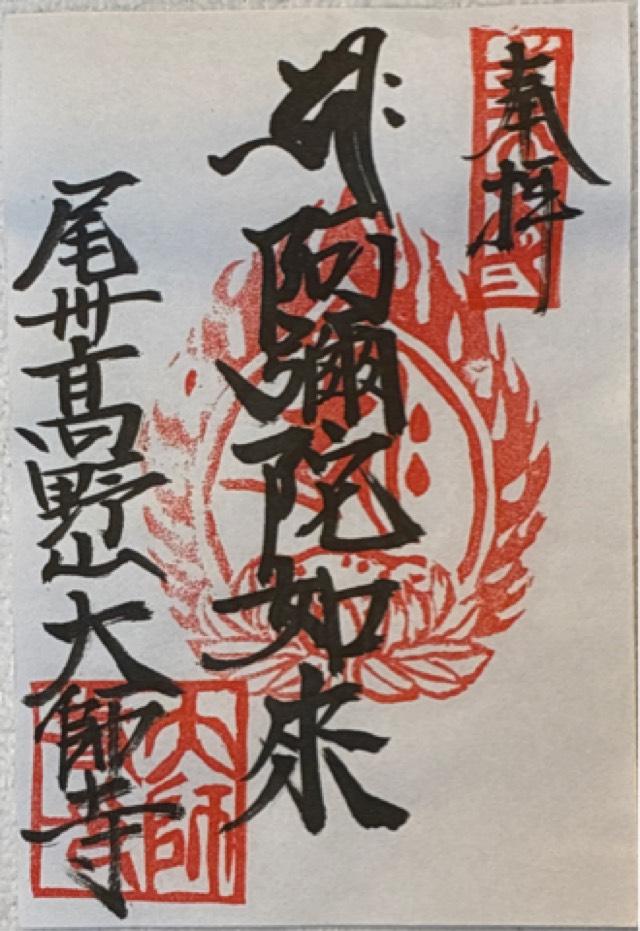 奉拝
阿彌陀如來
尾州高野山大師寺
大師